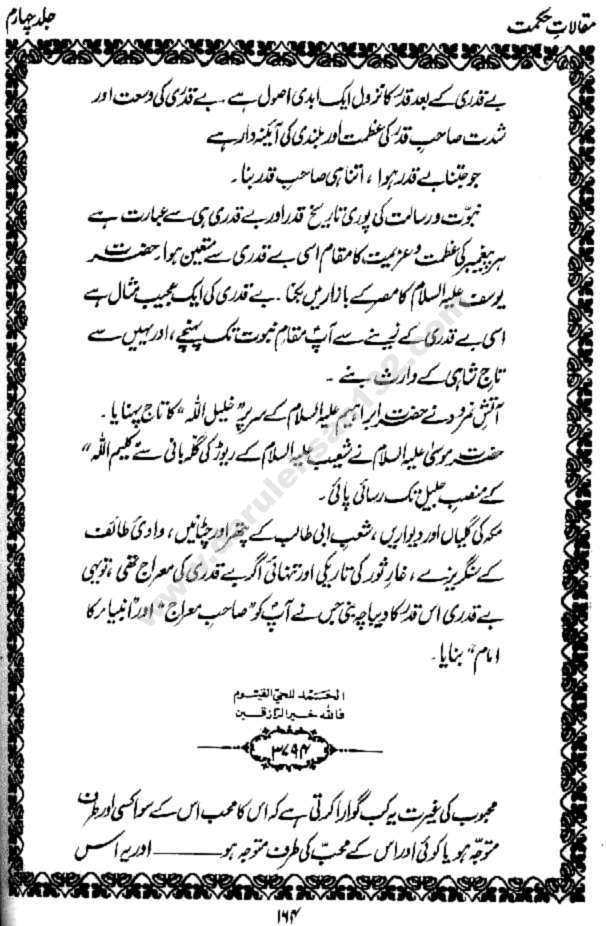 مقالاتِ حکمت
جلد چہارم
بے قدری کے بعد قدر کا نزول ایک ابدی اصول ہے۔ بے قدری کی وسعت اور
شدت صاحبِ قدر کی عظمت اور بلندی کی آئینہ دار ہے
جو جتنا بے قدر ہوا ، اتنا ہی صاحبِ قدر بنا۔
نبوّت و رسالت کی پوری تاریخ قدر اور بے قدری ہی سے عبارت ہے
ہر پیغمبر کی عظمت و عزیمت کا مقام اسی بے قدری سے متعین ہوا۔ حضرت
یوسف علیہ السلام کا مصر کے بازار میں بکنا۔ بے قدری کی ایک عجیب مثال ہے
اسی بے قدری کے زینے سے آپؑ مقامِ نبوت تک پہنچے ، اور یہیں سے
تاجِ شاہی کے وارث بنے ۔
آتشِ نمرود نے حضرت ابراہیم علیہ السلام کے سر پر ”خلیل اللہ“ کا تاج پہنایا ۔
حضرت موسیٰ علیہ السلام نے شعیب علیہ السلام کے ریوڑ کی گلہ بانی سے ”کلیم اللہ“
کے منصبِ جلیل تک رسائی پائی۔
مکہ کی گلیاں اور دیواریں ، شعبِ ابی طالب کے پتھر اور چٹانیں ، وادیٔ طائف
کے سنگریزے ، غارِ ثور کی تاریکی اور تنہائی اگر بے قدری کی معراج تھی ، تو یہی
بے قدری اس قدر کا دیباچہ بنی جس نے آپؐ کو ”صاحبِ معراج“ اور ”انبیاء کا
امام“ بنایا ۔
الحمد للحی القیوم
فاللہ خیر الرازقین
۳۷۹۴
محبوب کی غیرت یہ کب گوارا کرتی ہے کہ اس کا محب اس کے سوا کسی اور طرف
متوجّہ ہو یا کوئی اور اس کے محبّ کی طرف متوجہ ہو ——— اور یہ اس
۱۶۴
www.darulehsan132.com